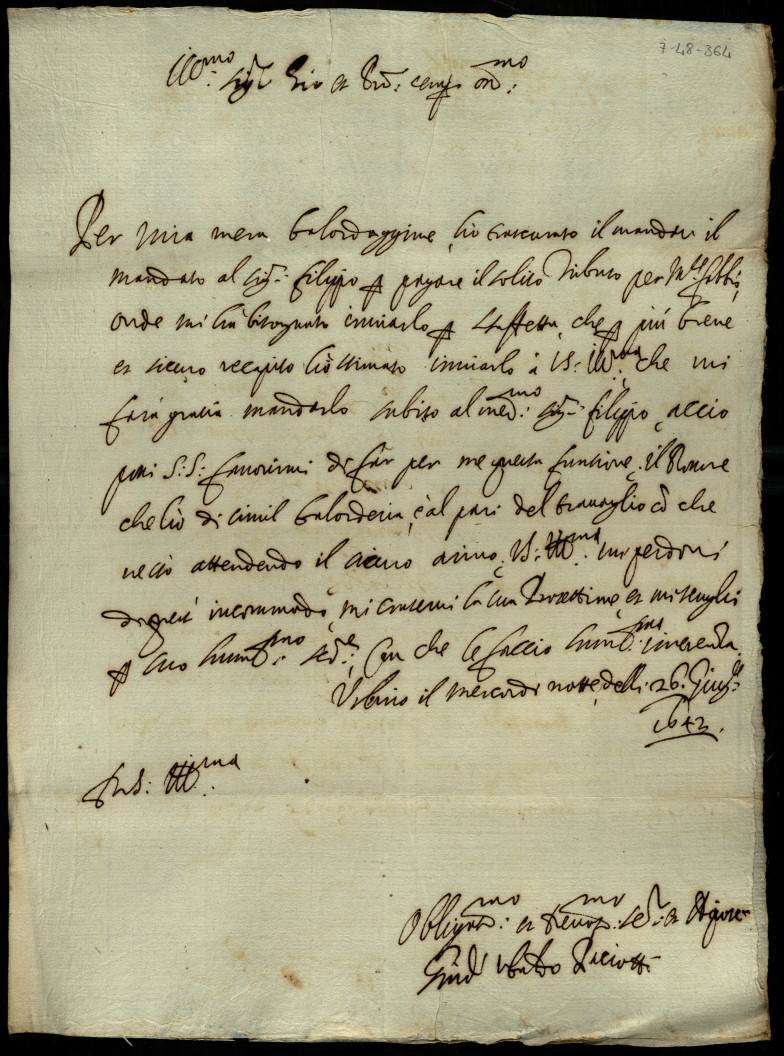 7-48-364
Ill.mo Sig.r Zio et Prõ: semp. oss.mo:
Per mia mera balordaggine, hò trascurato il mandare il
mandato al Sig.r Filippo p pagare il solito Tributo per
onde mi hà bisognato inviarlo p staffetta, che p più breve
et sicuro recapito hò stimato inviarlo à VS: Ill.ma che mi
farà gratia mandarlo subito al med.mo Sig.r Filippo, acciò
poi S: S: favorirmi di far per me questa funtione. Il
che hò di simil balorderia, è al pari del travaglio cõ che
ne stò attendendo il sicuro arrivo. VS: Ill.ma mi perdoni
di quest' incommodo, mi conservi la sua Protettione, et mi tenghi
p suo humil.mo ser.e, Con che le faccio humil.ma riverenza.
Urbino il mercordi notte, delli 26. Giug.o
1642.
Di VS: Ill.ma
Obligat.mo: et devot.mo: ser.r: et Nipote
Ubaldo Paciotti